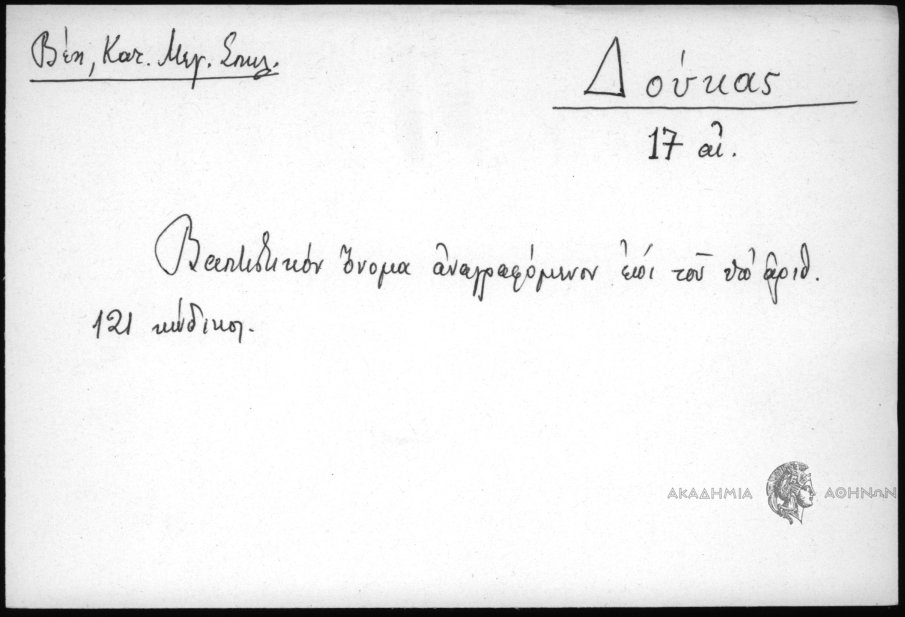 Βέη, Κατ. Μεγ. Σπηλ.
Δούκας
17 αἰ.
Βαπτιστικόν ὄνομα ἀναγραφόμενον ἐπί τοῦ ὑπ' ἀριθ.
121 κώδικος.
ΑΚΑΔΗΜΙΑ ΑΘΗΝΩΝ